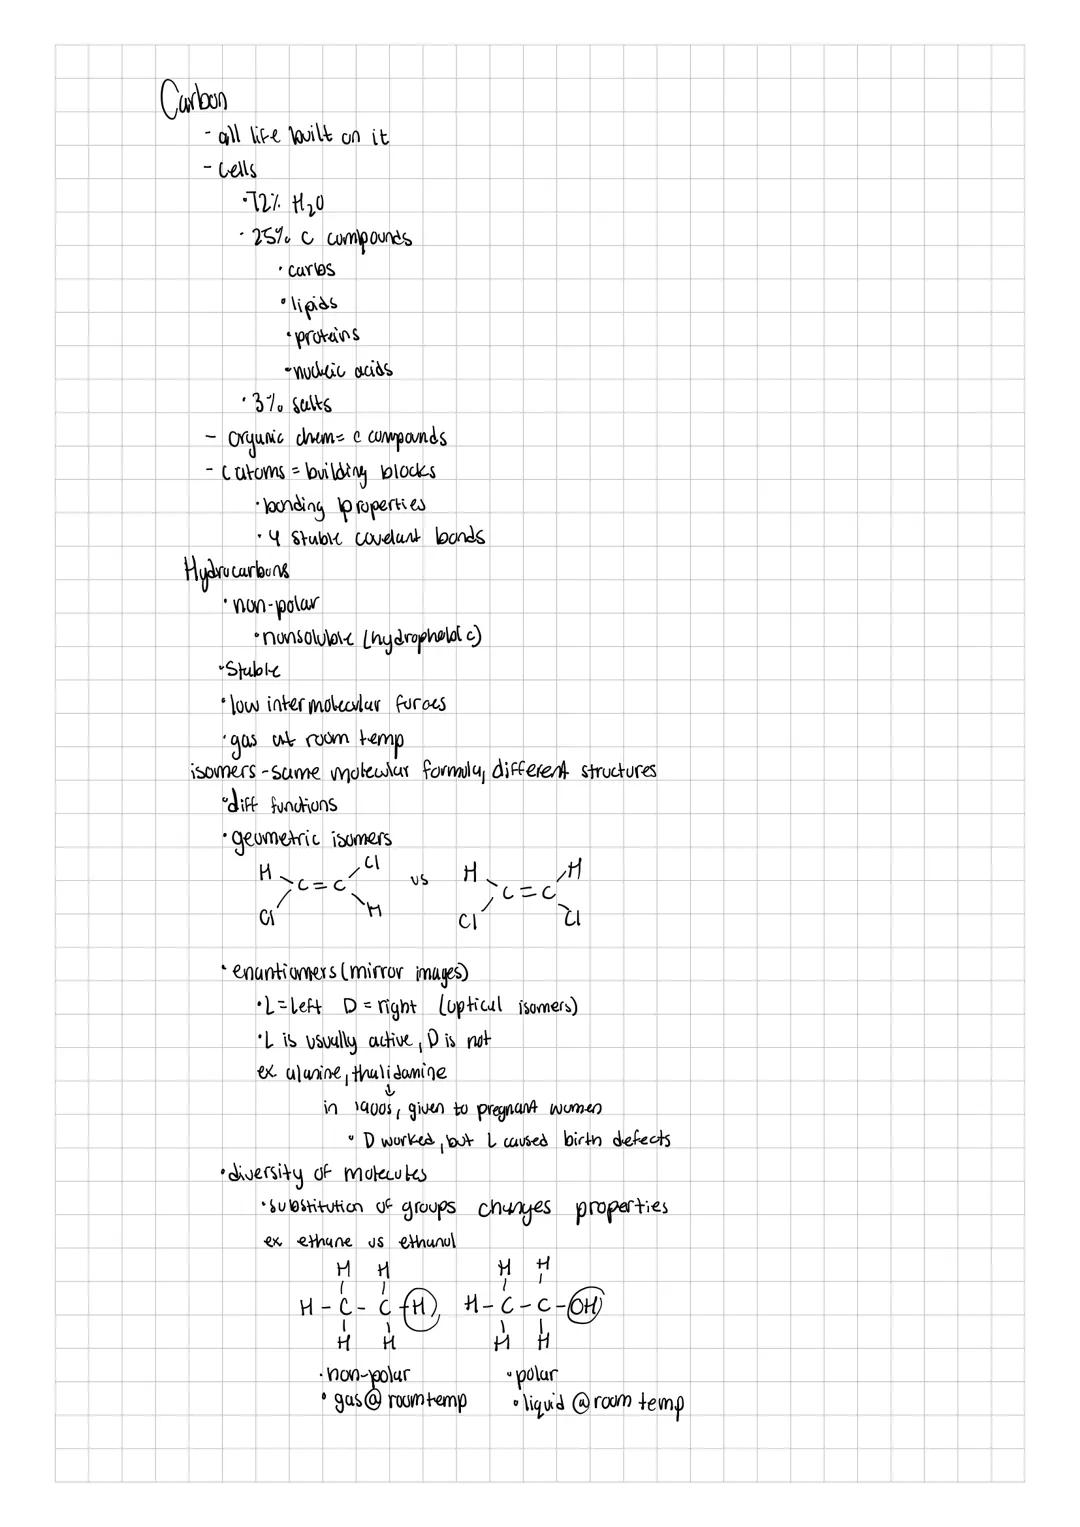 Carbon
- all life built on it
- Cells
• 72% H₂O
• 25% C compounds
• carbs
• lipids
• proteins
• nucleic acids
• 3% salts
- organic chem = C compounds
- C atoms = building blocks
• bonding properties
• 4 stable covelant bonds
Hydrocarbons
• non-polar
• nonsoluble (hydrophobic)
• Stable
• low intermolecular forces
• gas at room temp
isomers - same molecular formula, different structures
• diff functions
• geometric isomers
H Cl vs H H
C = C C = C
Cl H Cl Cl
• enantiomers (mirror images)
• L = Left D = right (optical isomers)
• L is usually active, D is not
ex alanine, thalidamine
↓
in 1900s, given to pregnant women
• D worked, but L caused birth defects
• diversity of molecules
• substitution of groups changes properties
ex ethane vs ethanol
H H H H
H - C - C - H H - C - C - OH
H H H H
• non-polar • polar
• gas @ room temp • liquid @ room temp